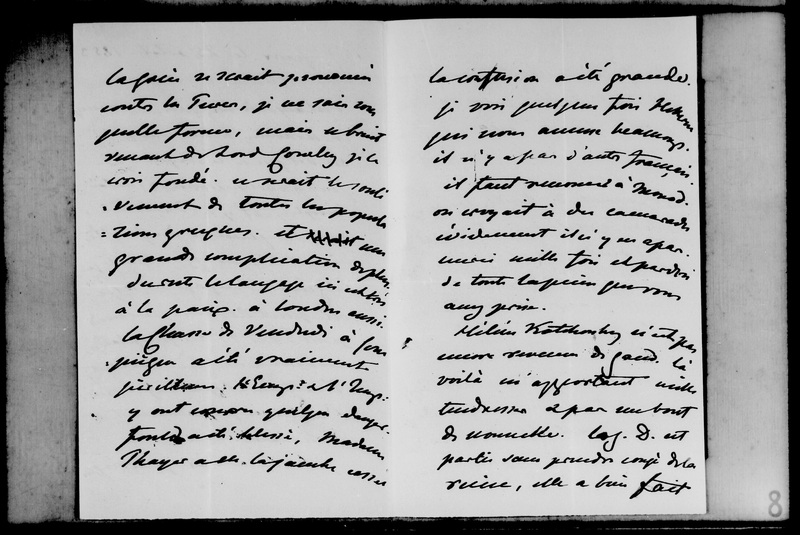 la guerre se serait prononcée
contre les Turcs, je ne sais sous
quelle forme, mais le bruit
venant de Lord Cowley je le
crois fondé. ce serait le soulè
-vement de toutes les popula
=tions grecques. et une
grande complication de plus.
du reste le langage ici est très
à la paix. à Londres aussi.
la chasse de Vendredi à Com
-piègne a été vraiment
périlleuse. l'Emp: & l'Imp:
y ont couru quelque danger.
Fould a été blessé, Madame
Thayer a eu la jambe cassée
la confusion a été grande.
je vois quelques fois
qui nous amuse beaucoup.
il n'y a pas d'autre français.
il faut renoncer à Monod.
on croyait à des camarades
évidemment il n'y en a pas.
merci mille fois et pardon
de toute la peine que vous
avez prise.
Hélène Kotchoubey n'est pas
encore revenue de Gand. là
voilà m'apportant mille
tendresses et pas un bout
de nouvelle. Log. D. est
partie sans prendre congé de la
reine, elle a bien fait
8